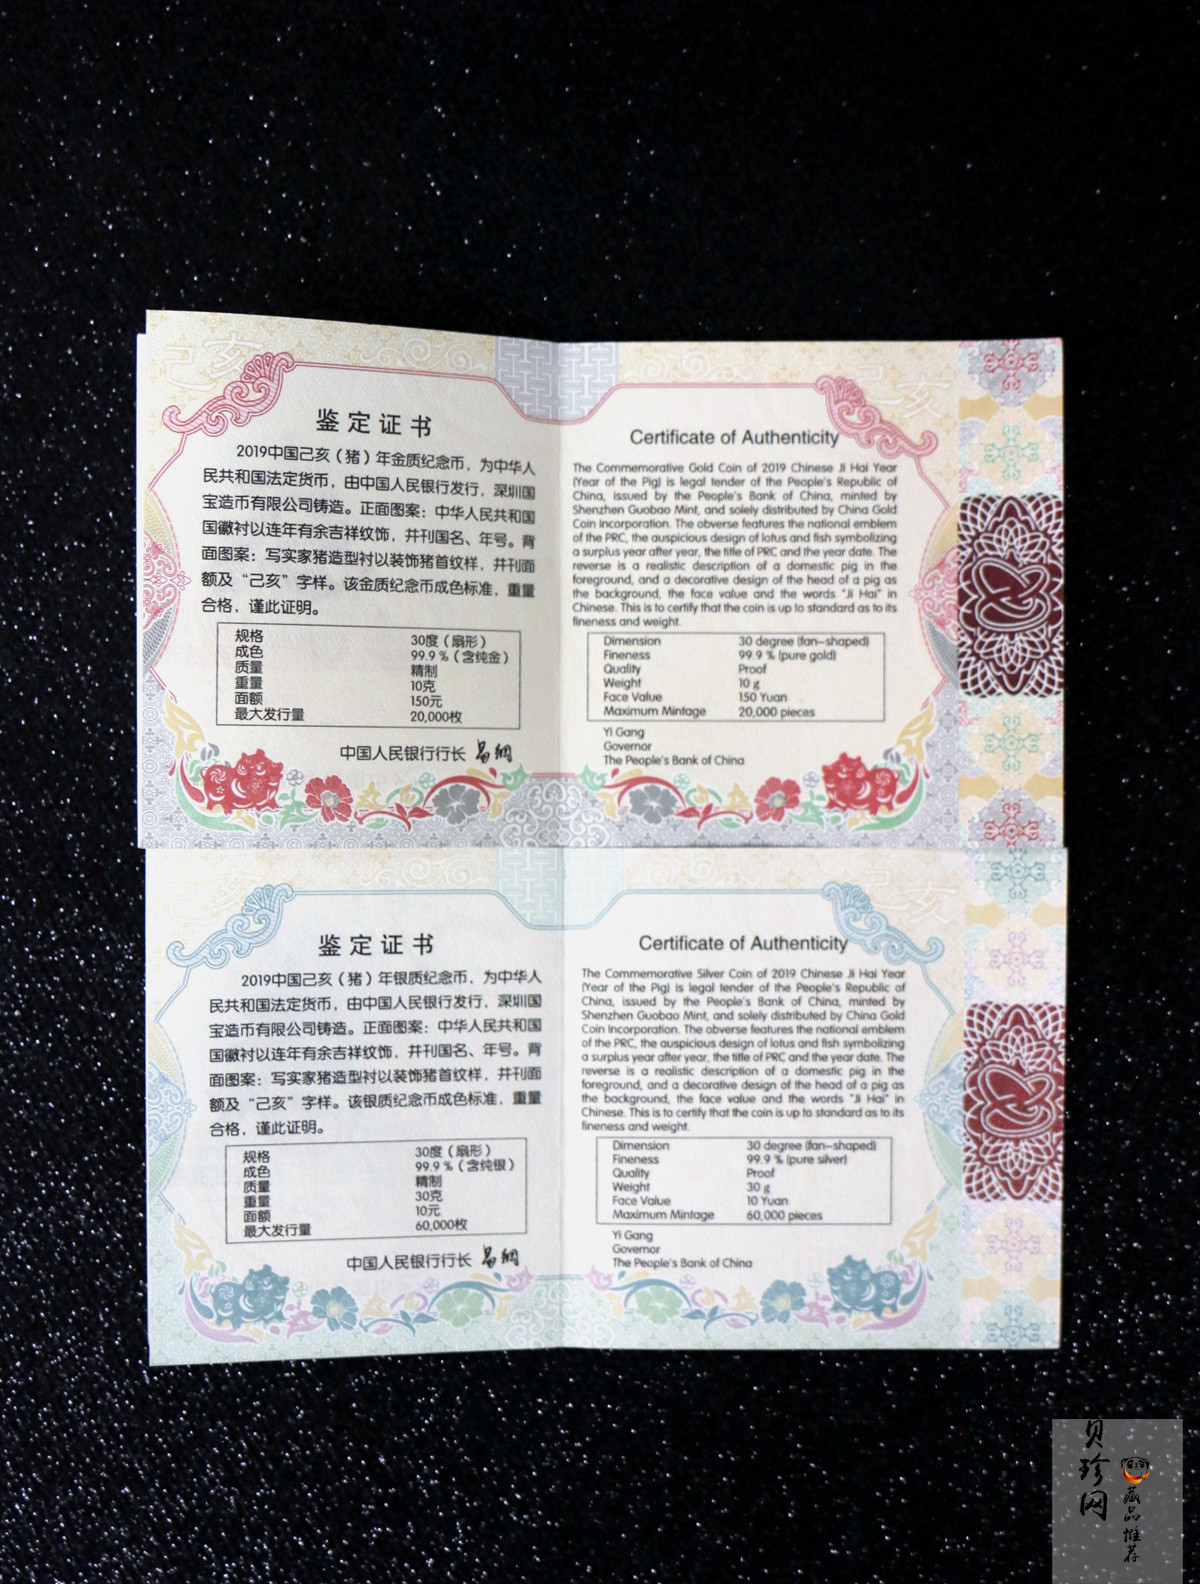 鉴定证书
2019中国己亥（猪）年金质纪念币，为中华人
民共和国法定货币，由中国人民银行发行，深圳国
宝造币有限公司铸造。正面图案：中华人民共和国
国徽衬以连年有余吉祥纹饰，并刊国名、年号。背
面图案：写实家猪造型衬以装饰猪首纹样，并刊面
额及“己亥”字样。该金质纪念币成色标准，重量
合格，谨此证明。
规格 30度（扇形）
成色 99.9％（含纯金）
质量 精制
重量 10克
面额 150元
最大发行量 20,000枚
中国人民银行行长 易纲
Certificate of Authenticity
The Commemorative Gold Coin of 2019 Chinese Ji Hai Year
(Year of the Pig) is legal tender of the People's Republic of
China, issued by the People's Bank of China, minted by
Shenzhen Guobao Mint, and solely distributed by China Gold
Coin Incorporation. The obverse features the national emblem
of the PRC, the auspicious design of lotus and fish symbolizing
a surplus year after year, the title of PRC and the year date. The
reverse is a realistic description of a domestic pig in the
foreground, and a decorative design of the head of a pig as
the background, the face value and the words "Ji Hai" in
Chinese. This is to certify that the coin is up to standard as to its
fineness and weight.
Dimension 30 degree (fan-shaped)
Fineness 99.9 % (pure gold)
Quality Proof
Weight 10 g
Face Value 150 Yuan
Maximum Mintage 20,000 pieces
Yi Gang
Governor
The People's Bank of China
鉴定证书
2019中国己亥（猪）年银质纪念币，为中华人
民共和国法定货币，由中国人民银行发行，深圳国
宝造币有限公司铸造。正面图案：中华人民共和国
国徽衬以连年有余吉祥纹饰，并刊国名、年号。背
面图案：写实家猪造型衬以装饰猪首纹样，并刊面
额及“己亥”字样。该银质纪念币成色标准，重量
合格，谨此证明。
规格 30度（扇形）
成色 99.9％（含纯银）
质量 精制
重量 30克
面额 10元
最大发行量 60,000枚
中国人民银行行长 易纲
Certificate of Authenticity
The Commemorative Silver Coin of 2019 Chinese Ji Hai Year
(Year of the Pig) is legal tender of the People's Republic of
China, issued by the People's Bank of China, minted by
Shenzhen Guobao Mint, and solely distributed by China Gold
Coin Incorporation. The obverse features the national emblem
of the PRC, the auspicious design of lotus and fish symbolizing
a surplus year after year, the title of PRC and the year date. The
reverse is a realistic description of a domestic pig in the
foreground, and a decorative design of the head of a pig as
the background, the face value and the words "Ji Hai" in
Chinese. This is to certify that the coin is up to standard as to its
fineness and weight.
Dimension 30 degree (fan-shaped)
Fineness 99.9 % (pure silver)
Quality Proof
Weight 30 g
Face Value 10 Yuan
Maximum Mintage 60,000 pieces
Yi Gang
Governor
The People's Bank of China
己亥
己亥
己亥
己亥
贝珍网
藏品推荐